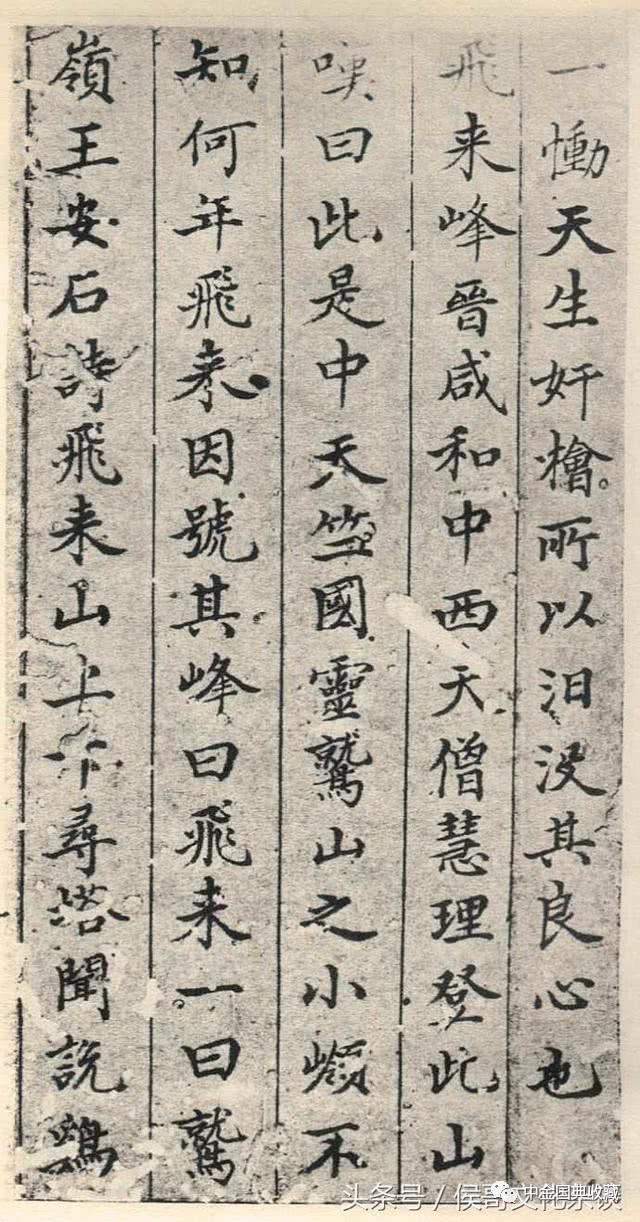 一慟天生奸檜所以汨没其良心也
飛来峰晉咸和中西天僧慧理登此山
嘆曰此是中天竺國靈鷲山之小嶺不
知何年飛来因號其峰曰飛来一曰鷲
嶺王安石詩飛来山上下尋塔聞説鷄
中金国典收藏
头条号／侯哥文化杂谈